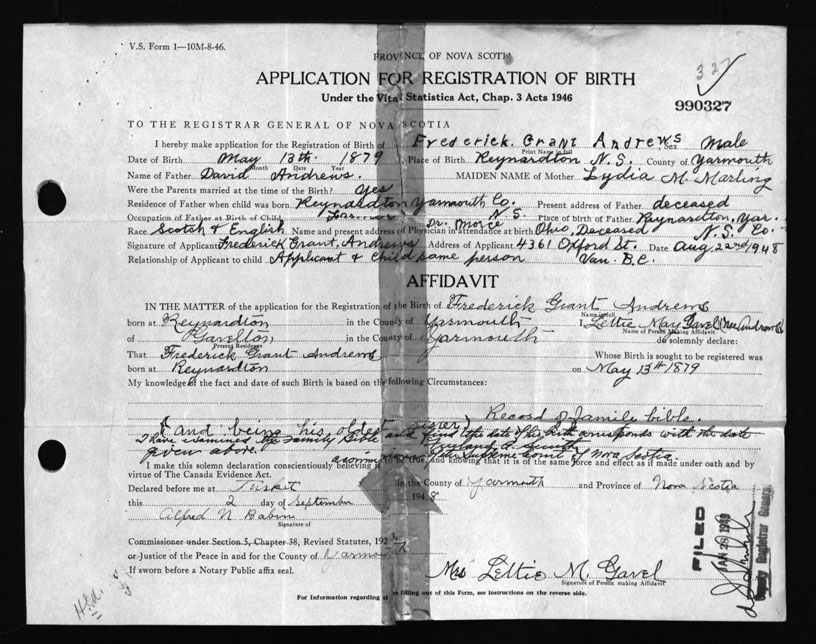 V.S. Form 1—10M-8-46.
PROVINCE OF NOVA SCOTIA
327
APPLICATION FOR REGISTRATION OF BIRTH
Under the Vital Statistics Act, Chap. 3 Acts 1946
990327
TO THE REGISTRAR GENERAL OF NOVA SCOTIA
I hereby make application for the Registration of Birth of Frederick Grant Andrews Sex Male
Print Name in full
Date of Birth May 13th 1879 Place of Birth Reynardton N.S. County of Yarmouth
Month Date Year
Name of Father David Andrews. MAIDEN NAME of Mother Lydia M. Marling
Were the Parents married at the time of the Birth? Yes
Residence of Father when child was born Reynardton Yarmouth Co. N.S. Present address of Father deceased
Occupation of Father at Birth of Child Farmer Place of birth of Father Reynardton, Yar. Co. N.S.
Race Scotch & English Name and present address of Physician in attendance at birth Dr. Morce Ohio, Deceased
Signature of Applicant Frederick Grant, Andrews Address of Applicant 4361 Oxford St. Van. B.C. Date Aug. 22nd 1948
Relationship of Applicant to child Applicant & Child same person
AFFIDAVIT
IN THE MATTER of the application for the Registration of the Birth of Frederick Grant Andrews
Name in full
born at Reynardton in the County of Yarmouth I, Lettie May Gavel (nee Andrews)
Name of Person Making Affidavit
of Gavelton in the County of Yarmouth do solemnly declare:
Present Residence
That Frederick Grant Andrews Whose Birth is sought to be registered was
born at Reynardton on May 13th 1879
My knowledge of the fact and date of such Birth is based on the following Circumstances:
Record of famile bible.
(and being his oldest sister)
I have examined the family Bible and find the date of his birth corresponds with the date
given above.
of the Supreme Court of Nova Scotia.
I make this solemn declaration conscientiously believing it to be true and knowing that it is of the same force and effect as if made under oath and by
virtue of The Canada Evidence Act.
Declared before me at Tusket in the County of Yarmouth and Province of Nova Scotia
this 2 day of September 1948
Alfred N Babin
Signature of
Commissioner under Section 5, Chapter 38, Revised Statutes, 1923
or Justice of the Peace in and for the County of Yarmouth
If sworn before a Notary Public affix seal.
Mrs Lettie M. Gavel
Signature of Person making Affidavit
FILED
JAN 26 1949
Deputy Registrar General
For Information regarding the filling out of this Form, see instructions on the reverse side.